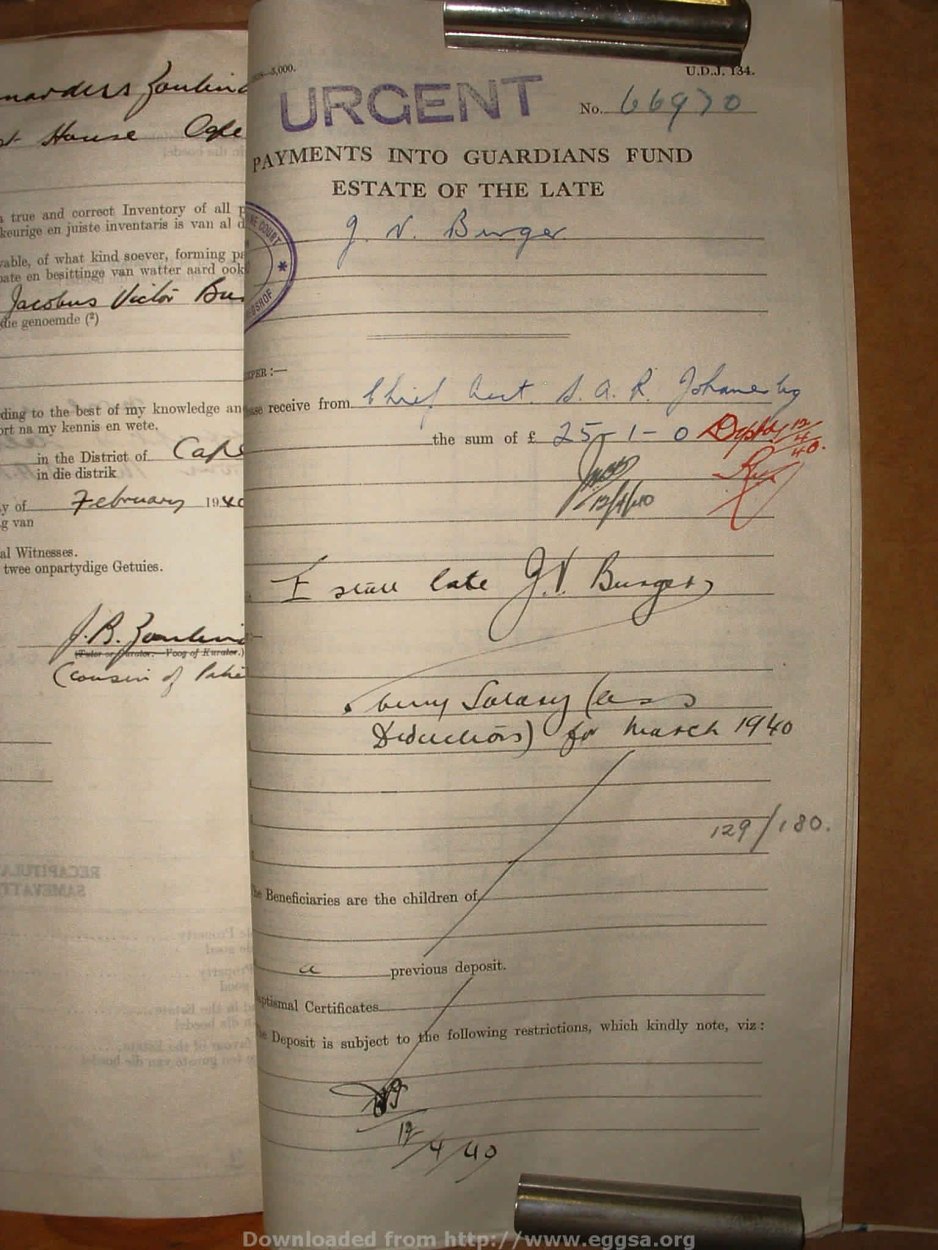 House
true and correct Inventory of all
keurige en juiste inventaris is van al
of what kind soever, forming
en besittinge van watter aard ook
Jacobus Victor
die genoemde (²)
ding to the best of my knowledge an
ort na my kennis en wete.
in the District of Cape
in die distrik
y of February 1940
g van
al Witnesses.
twee onpartydige Getuies.
J. B.
(Tutor or Curator. Voog of Kurator.)
(cousin of
5,000.
U.D.J. 134.
URGENT
No. 66970
PAYMENTS INTO GUARDIANS FUND
ESTATE OF THE LATE
J. V. Burger
receive from Chief Acct. S. A. R. Johannesbg
the sum of £ 25-1-0
12/4/40
12/4/40.
Estate late J. V. Burger
being Salary (less
Deductions) for March 1940
129/180.
Beneficiaries are the children of
a previous deposit.
Certificates
Deposit is subject to the following restrictions, which kindly note, viz:
12/4/40
Downloaded from http://www.eggsa.org